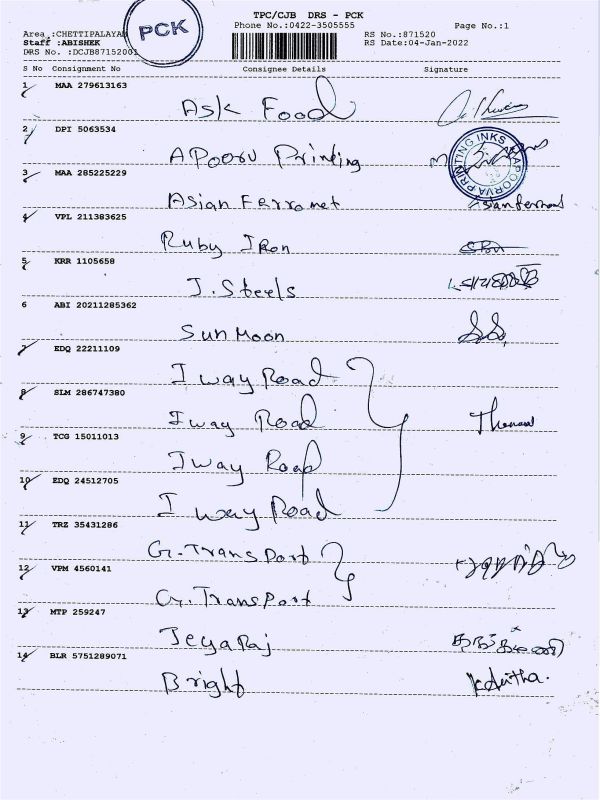 TPC/CJB DRS - PCK
Phone No.:0422-3505555 Page No.:1
PCK
Area :CHETTIPALAYAM RS No.:871520
Staff :ABISHEK RS Date:04-Jan-2022
DRS No. :DCJB87152001
S No Consignment No Consignee Details Signature
1 MAA 279613163
Ask Food
2 DPI 5063534
APoorv Printing
APOORVA PRINTING INKS
3 MAA 285225229
Asian Ferromet Asian Ferromet
4 VPL 211383625
Ruby Iron
5 KRR 1105658
J. Steels
6 ABI 20211285362
Sun Moon
7 EDQ 22211109
I way Road
8 SLM 286747380
I way Road
9 TCG 15011013
I way Road
10 EDQ 24512705
I way Road
11 TRZ 35431286
G. Transport
12 VPM 4560141
G. Transport
13 MTP 259247
Jeyaraj
14 BLR 5751289071
Bright